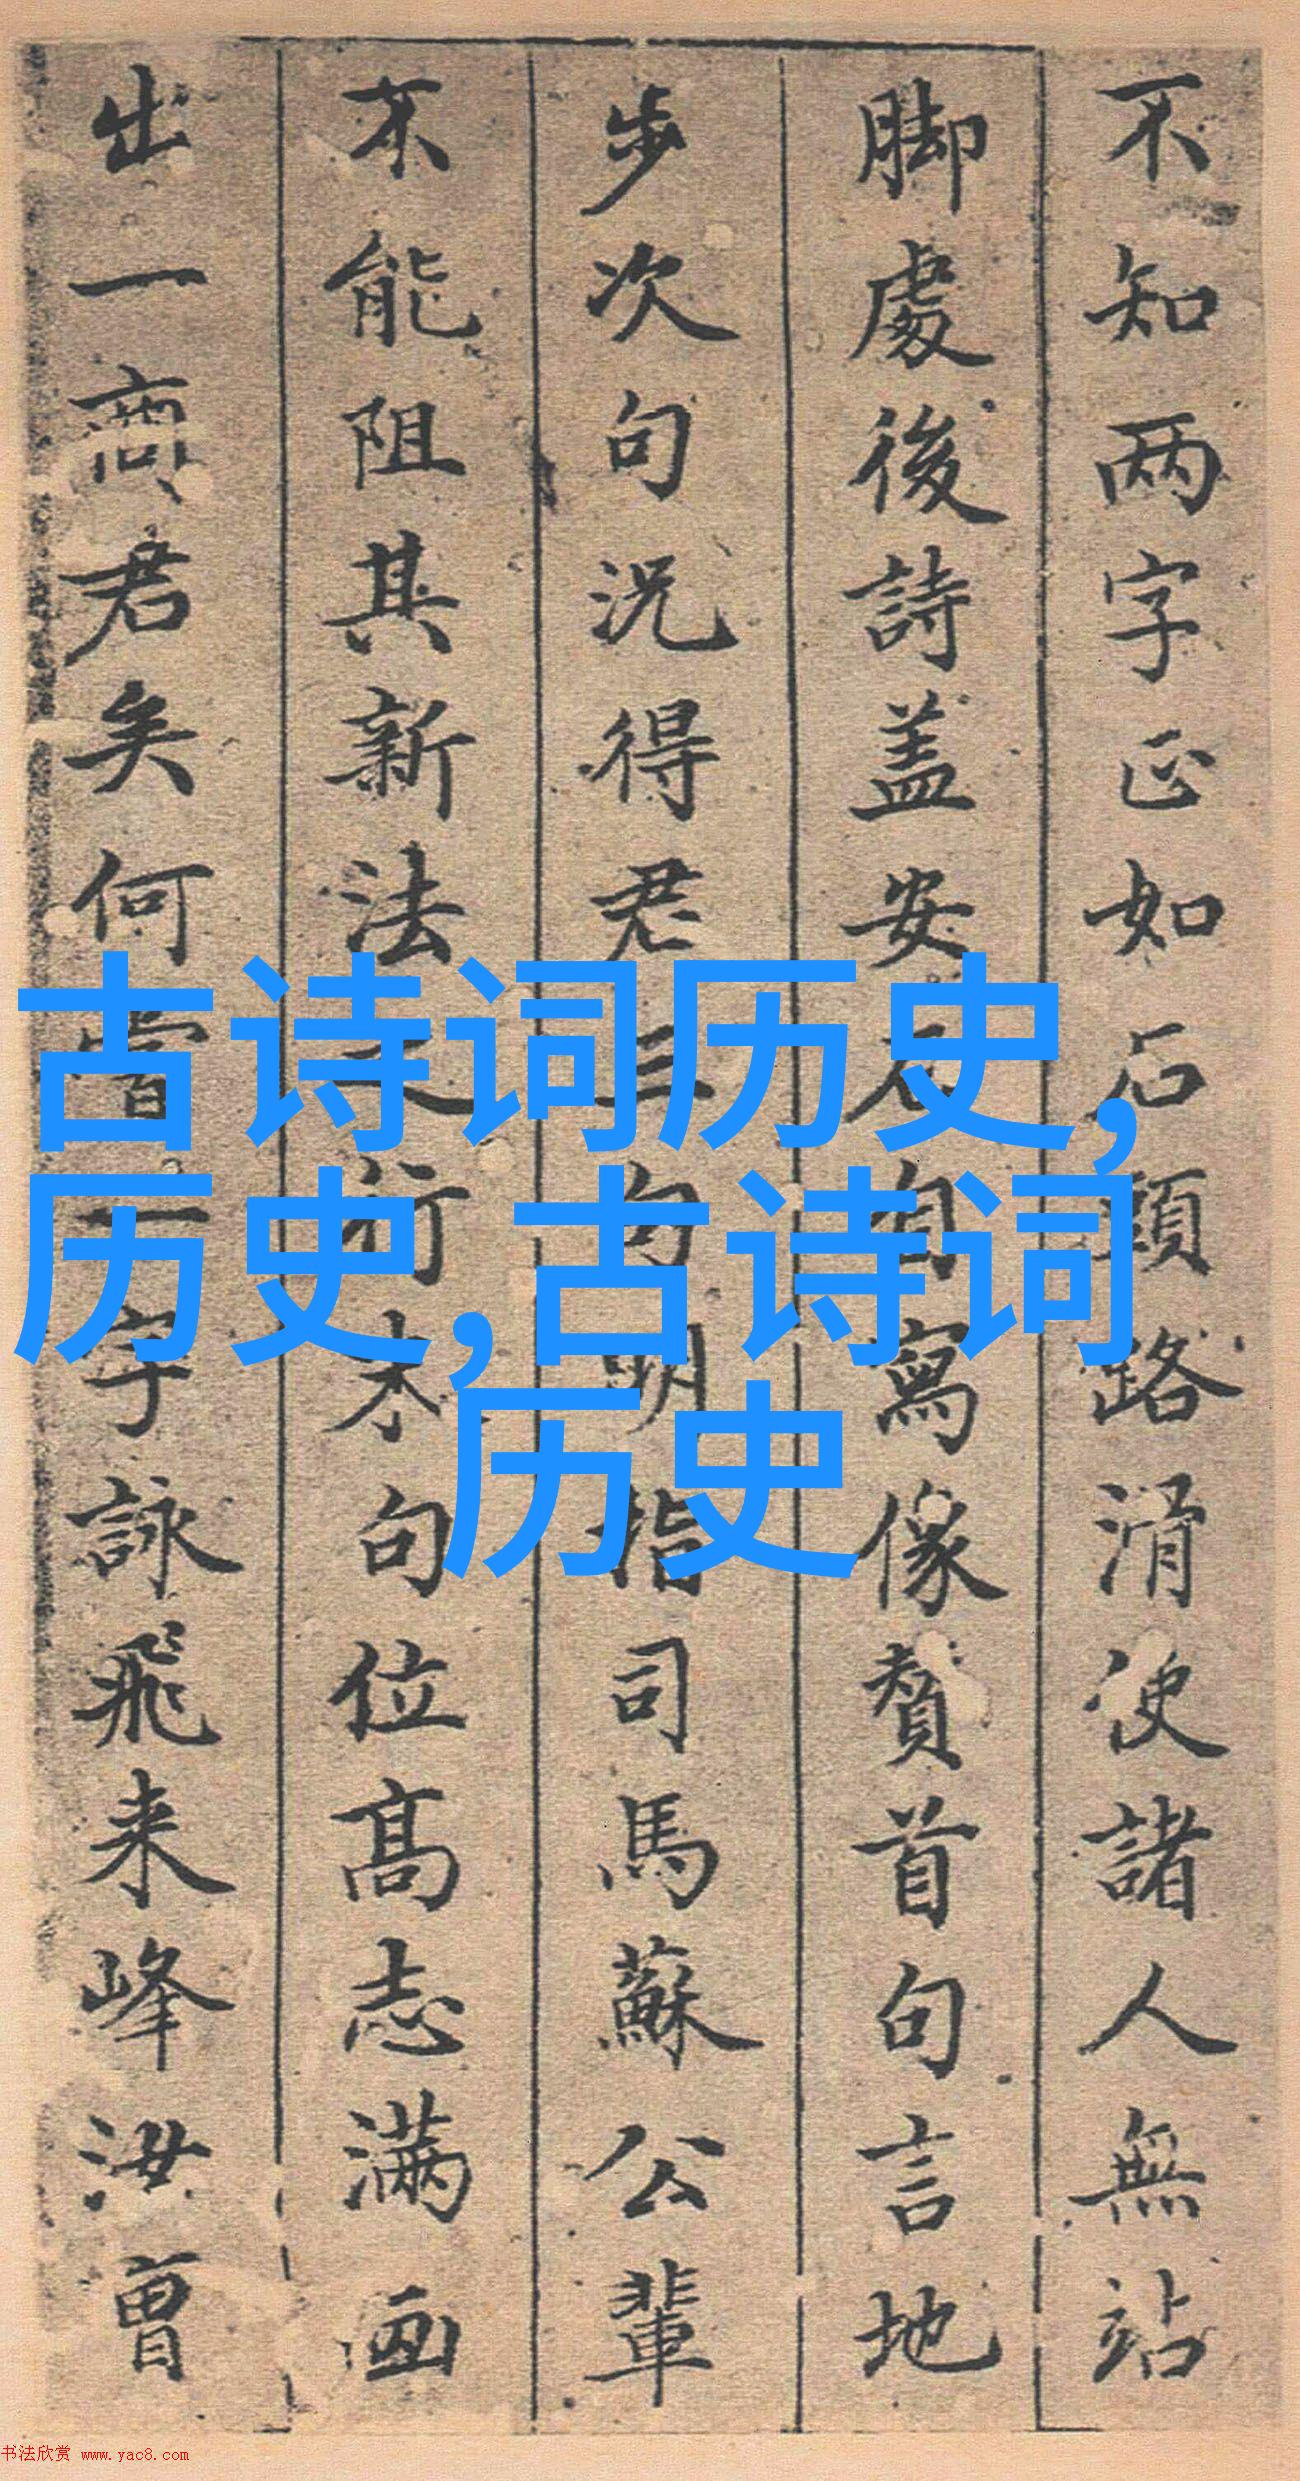 不知两字正如石頭路滑使諸人無站
脚處後詩盖安石自寫像贊首句言地
步次句况得君三句明指司馬蘇公輩
不能阻其新法之行末句位高志满画
出一商君矣何嘗一字詠飛来峰汝曾
古诗词历史,
历史,古诗词
历史
书法欣赏 www.yac8.com